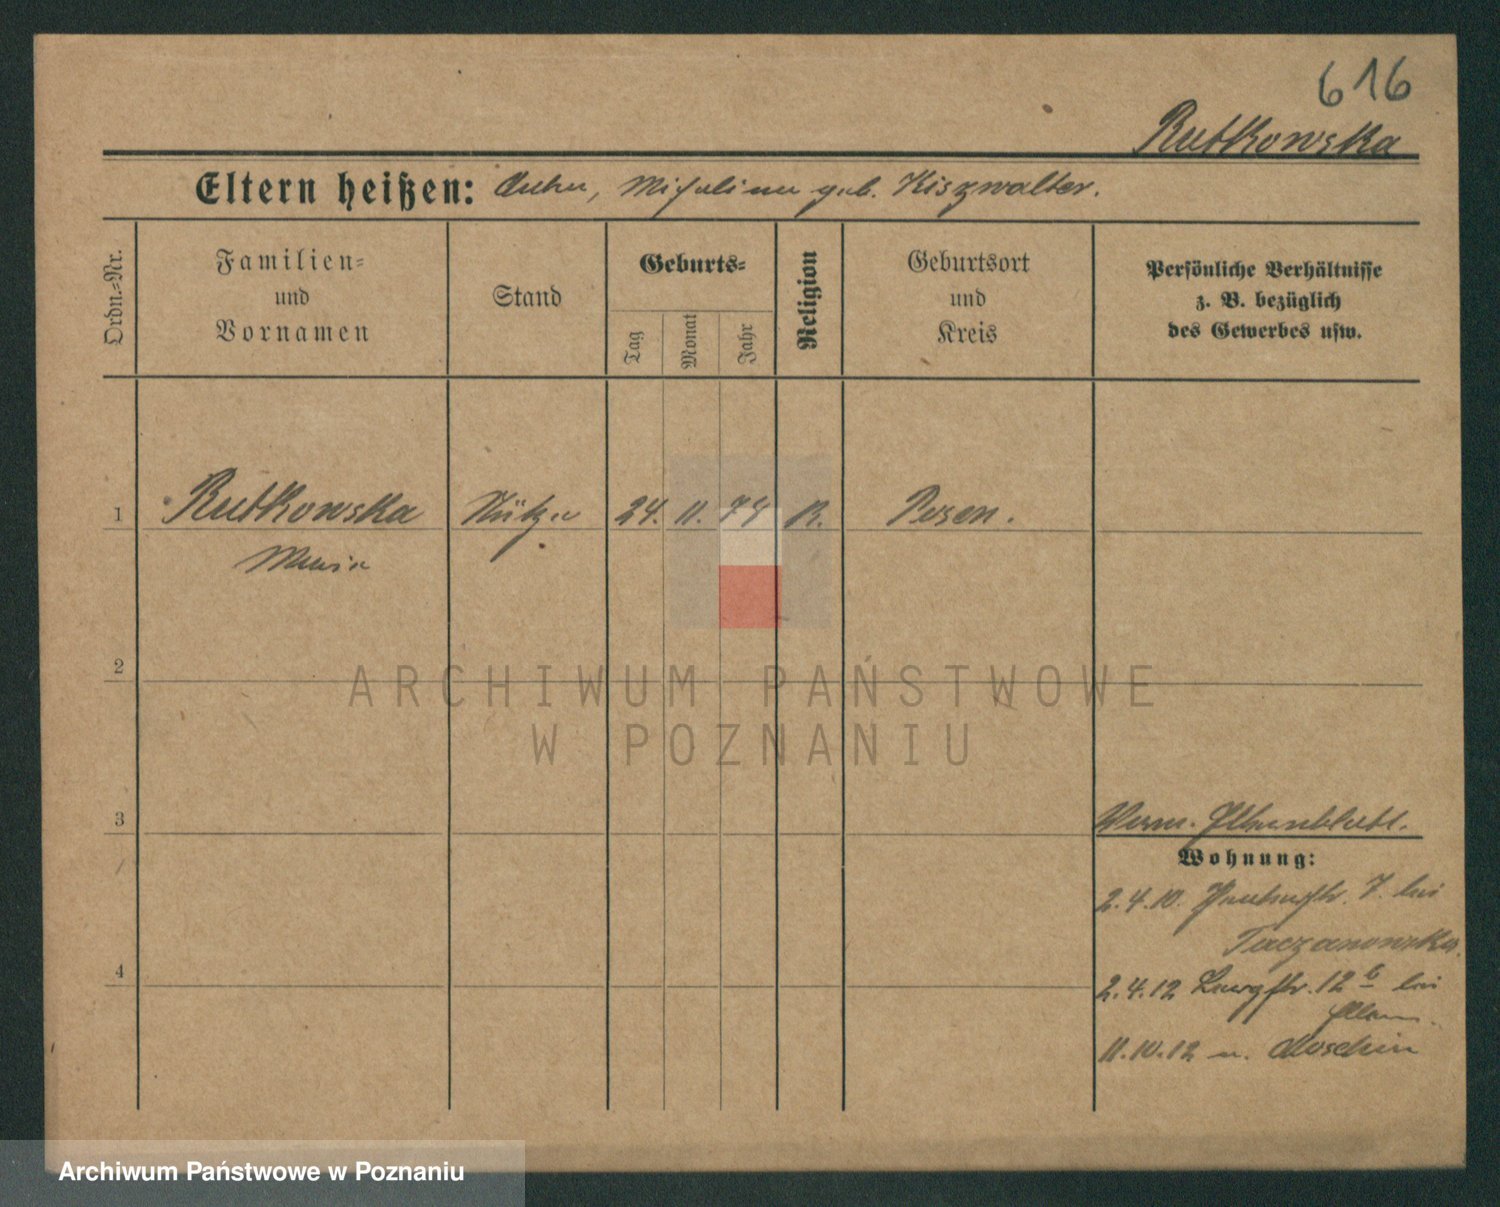 616
Rutkowska
Eltern heißen: geb. Kiszwalter.
Ordn.=Nr.
Familien=
und
Vornamen
Stand
Geburts=
Tag
Monat
Jahr
Religion
Geburtsort
und
Kreis
Persönliche Verhältnisse
z. B. bezüglich
des Gewerbes usw.
1 Rutkowska 24. 11. 74 Posen.
Maria
2
3
Verm. Elternblatt.
Wohnung:
2.4.10. 7. bei
Taczanowska.
4
2.4.12 Langstr. 12 b bei
Eltern.
11.10.12 n. Moschin
ARCHIWUM PAŃSTWOWE
W POZNANIU
Archiwum Państwowe w Poznaniu